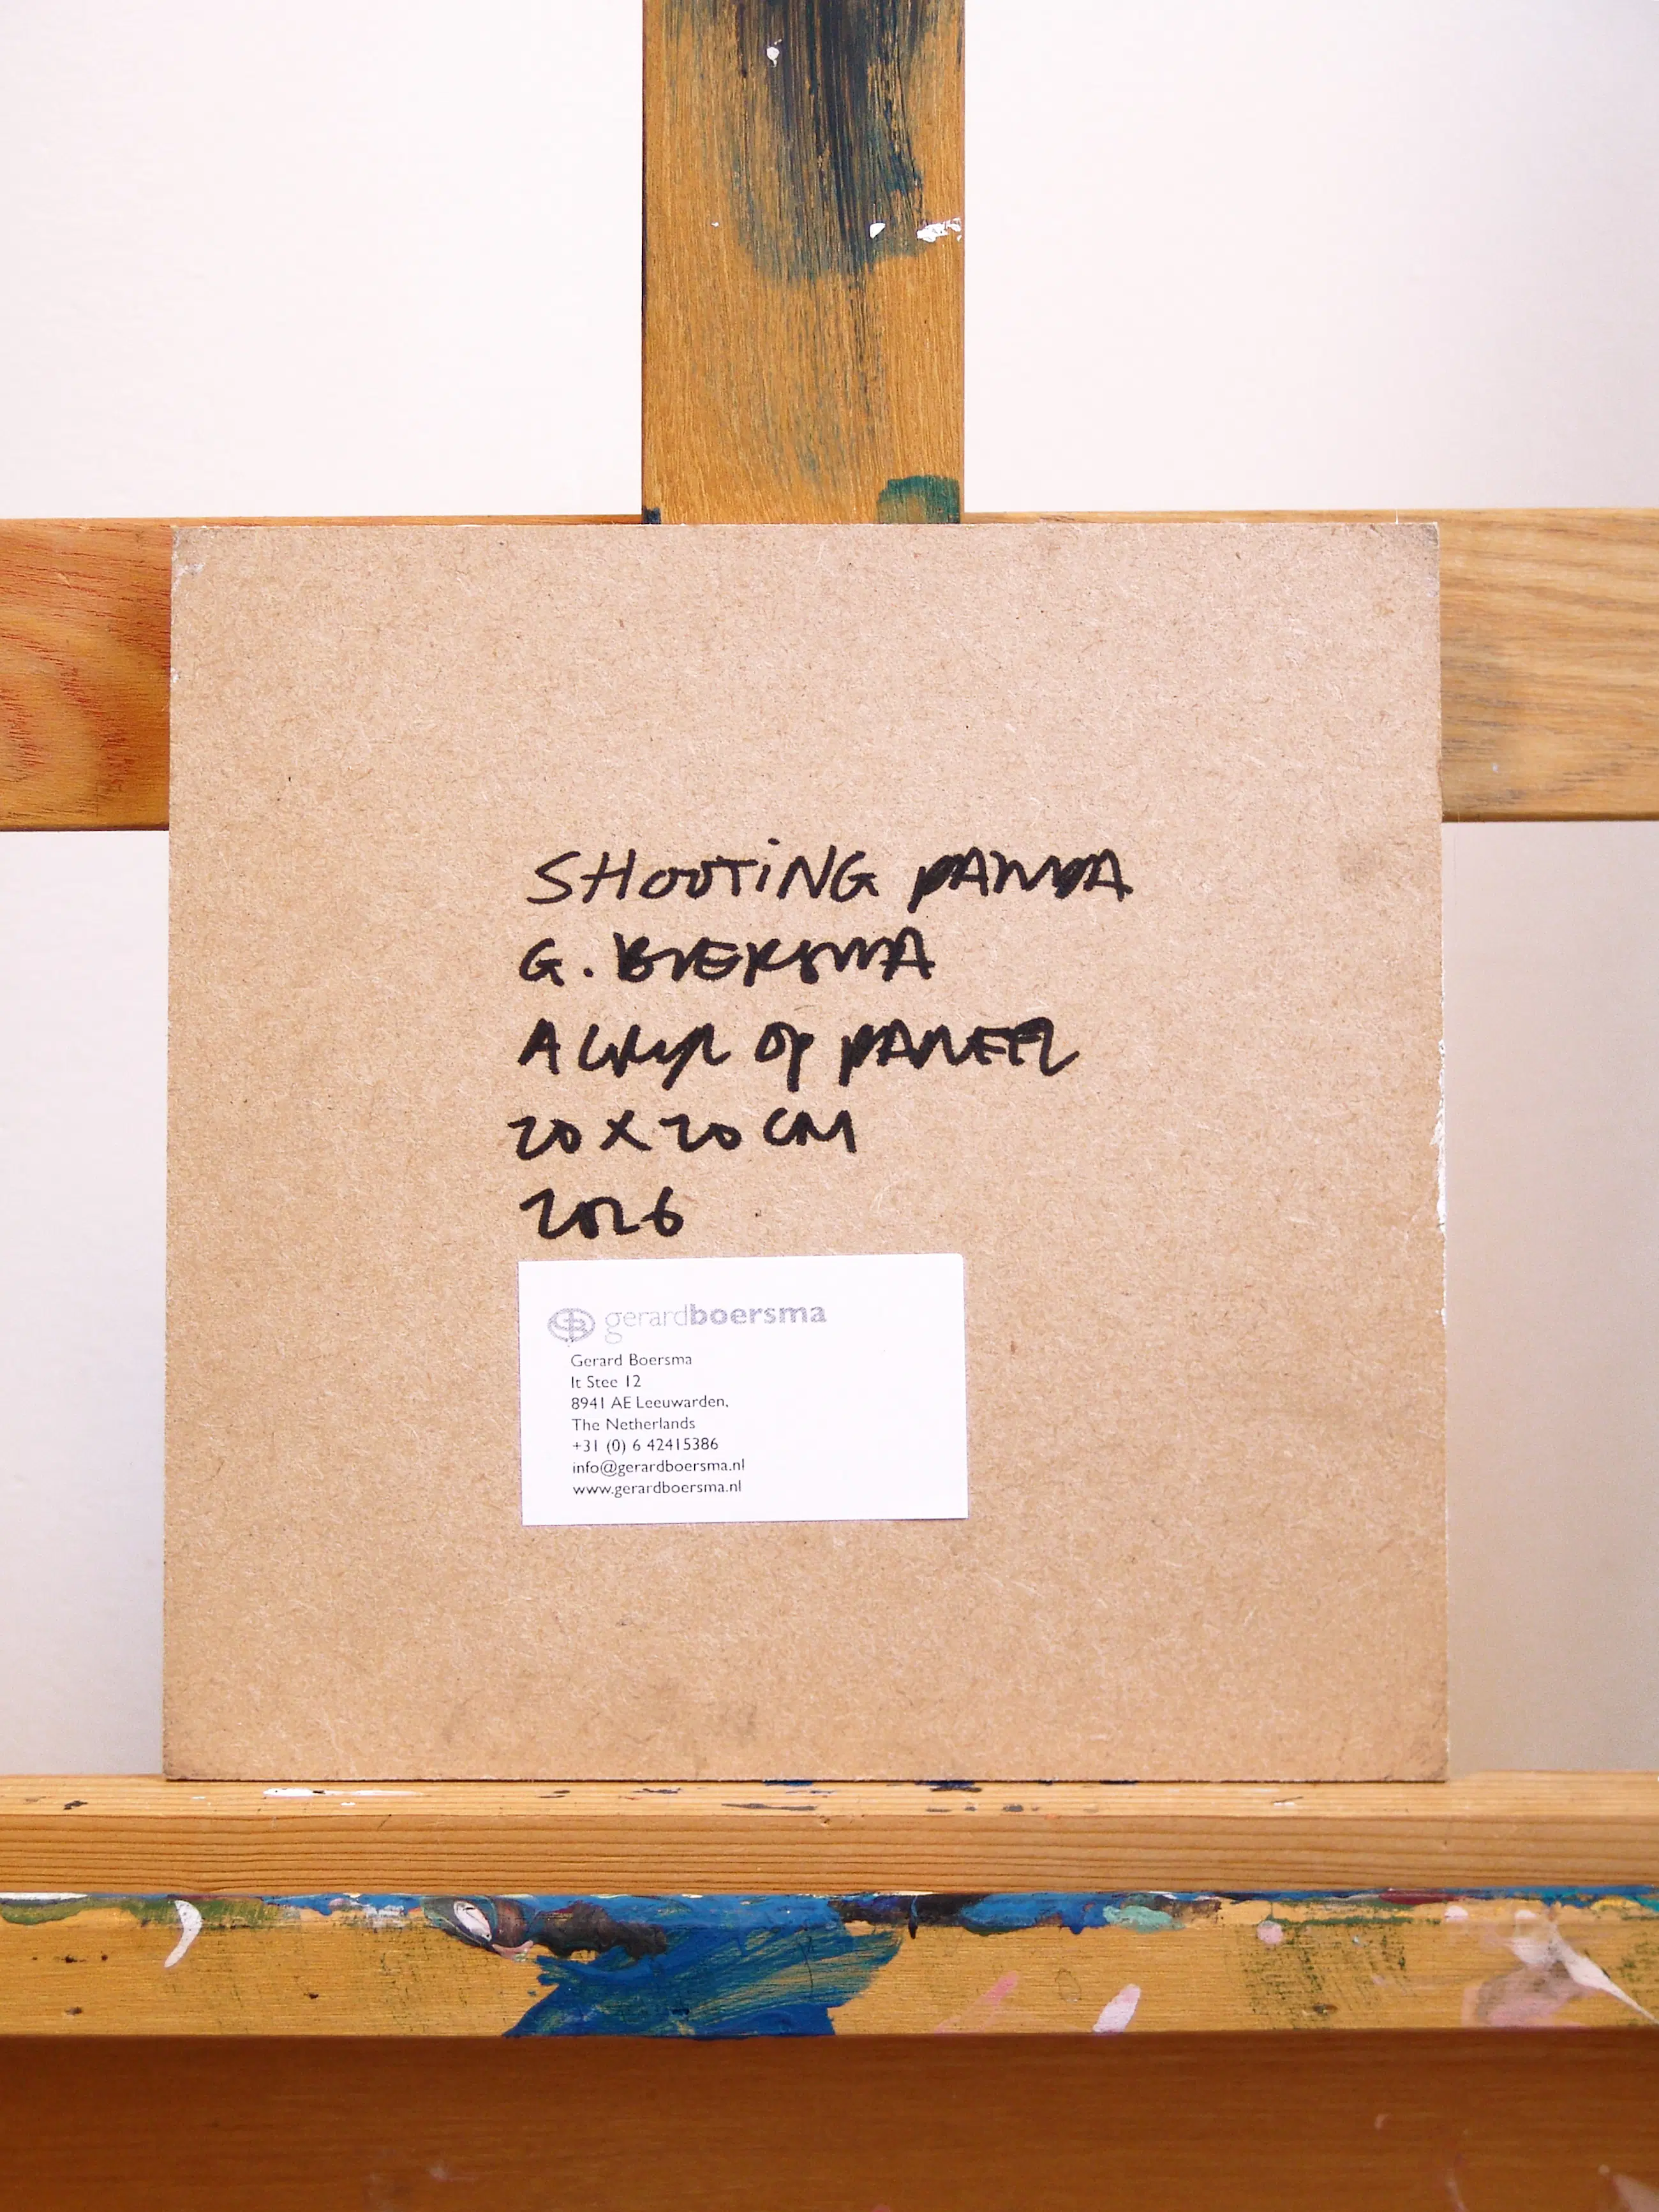 SHOOTING PANDA
G. BOERSMA
ACRYL OP PANEEL
20 X 20 CM
2026
gerardboersma
Gerard Boersma
It Stee 12
8941 AE Leeuwarden,
The Netherlands
+31 (0) 6 42415386
info@gerardboersma.nl
www.gerardboersma.nl